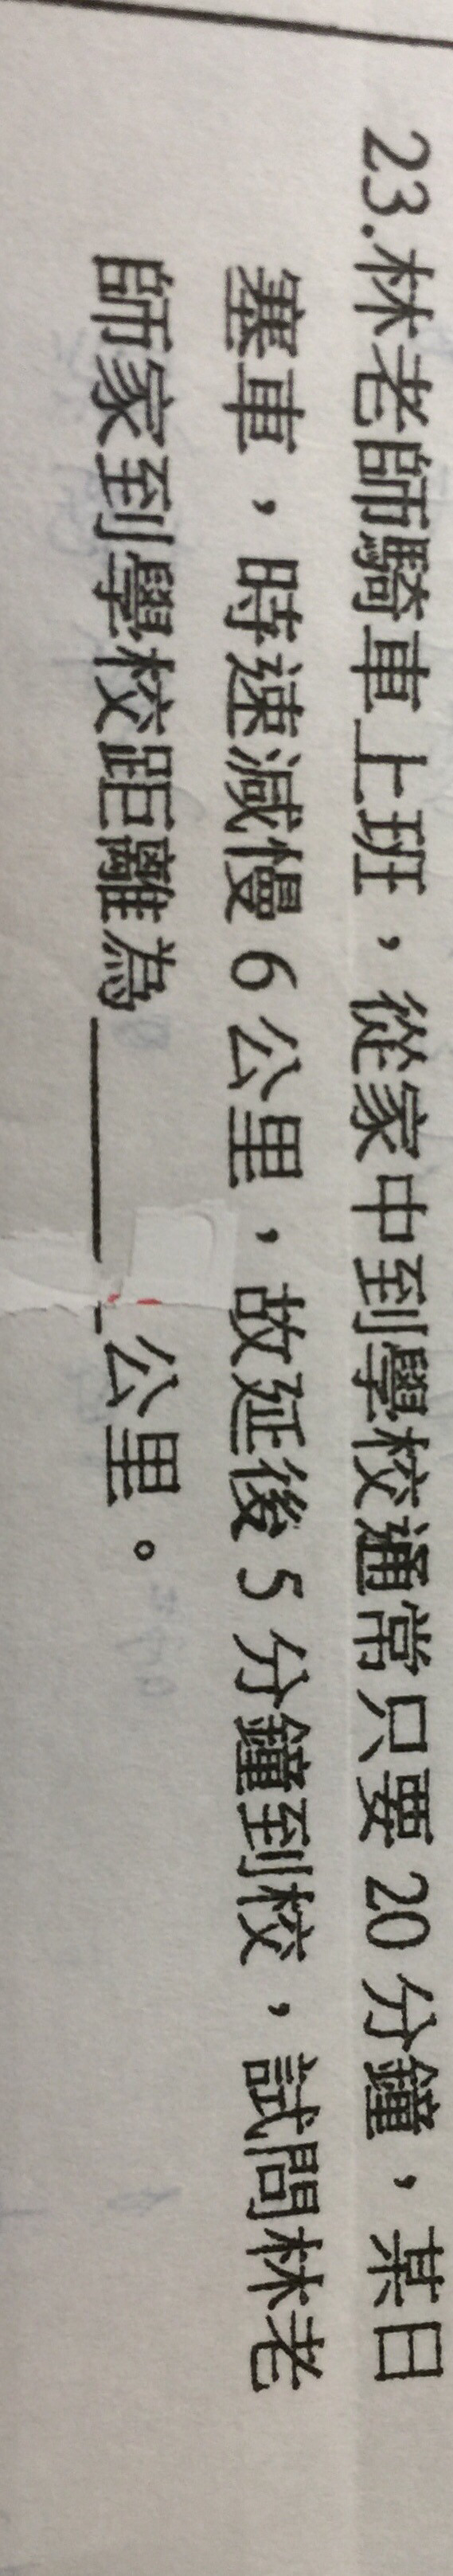 23.林老師騎車上班，從家中到學校通常只要 20 分鐘，某日
塞車，時速減慢 6 公里，故延後 5 分鐘到校，試問林老
師家到學校距離為______公里。